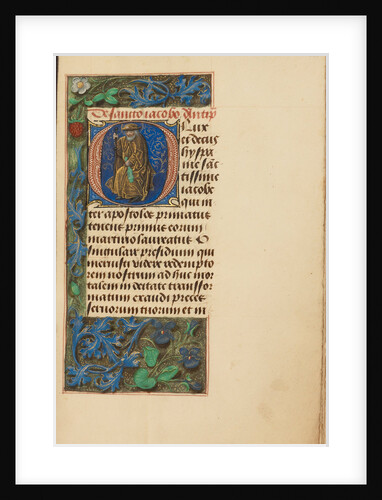 De sancto iacobo Antip̄
O Lux
et decus
hyspa
nie sanc
tissime
iacobe
qui in
ter apostolos primatus
tenens primus eorum
martirio laureatus O
singulare presidium qui
meruisti videre redempto
rem nostrum ad huc mor
talem in deitate transfor
matum exaudi preces
seruorum tuorum et in